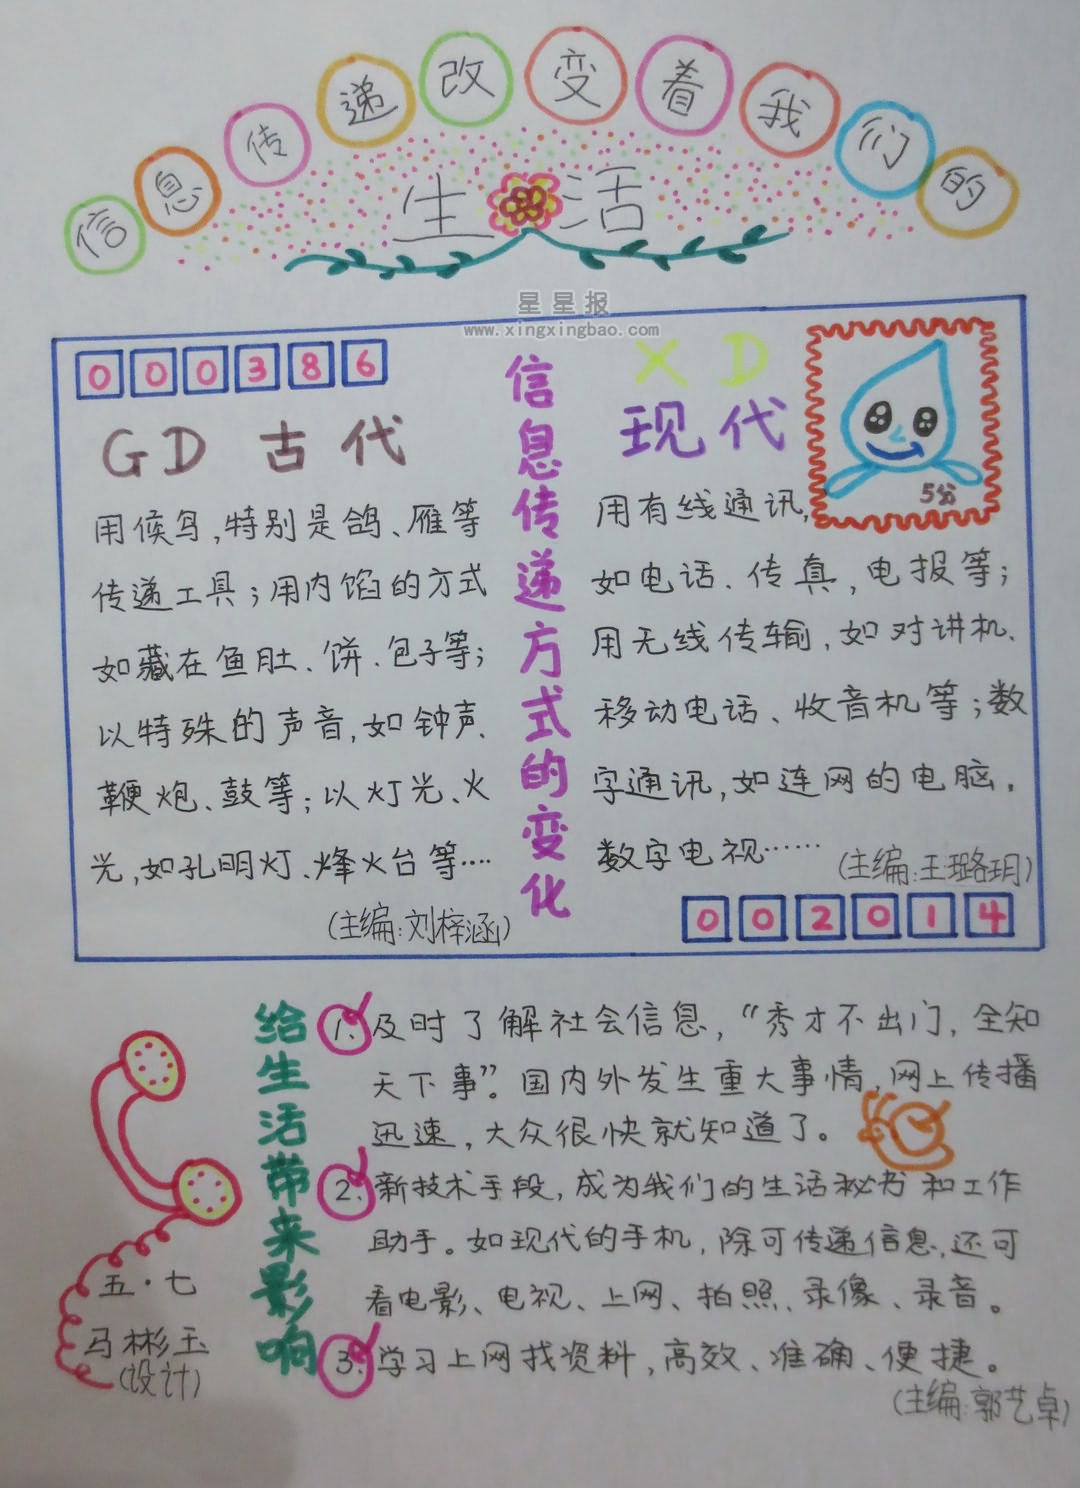 信息传递改变着我们的
生活
星星报
www.xingxingbao.com
000386
GD 古代
用候鸟,特别是鸽、雁等
传递工具;用内馅的方式
如藏在鱼肚、饼、包子等;
以特殊的声音,如钟声、
鞭炮、鼓等;以灯光、火
光,如孔明灯、烽火台等····
(主编:刘梓涵)
信息传递方式的变化
XD
现代
5分
用有线通讯,
如电话、传真,电报等;
用无线传输,如对讲机、
移动电话、收音机等;数
字通讯,如连网的电脑,
数字电视……
(主编:王璐玥)
002014
给生活带来影响
1、及时了解社会信息,“秀才不出门,全知
天下事”。国内外发生重大事情,网上传播
迅速,大众很快就知道了。
2、新技术手段,成为我们的生活秘书和工作
助手。如现代的手机,除可传递信息,还可
看电影、电视、上网、拍照、录像、录音。
3、学习上网找资料,高效、准确、便捷。
(主编:郭艺卓)
五·七
马彬玉
(设计)